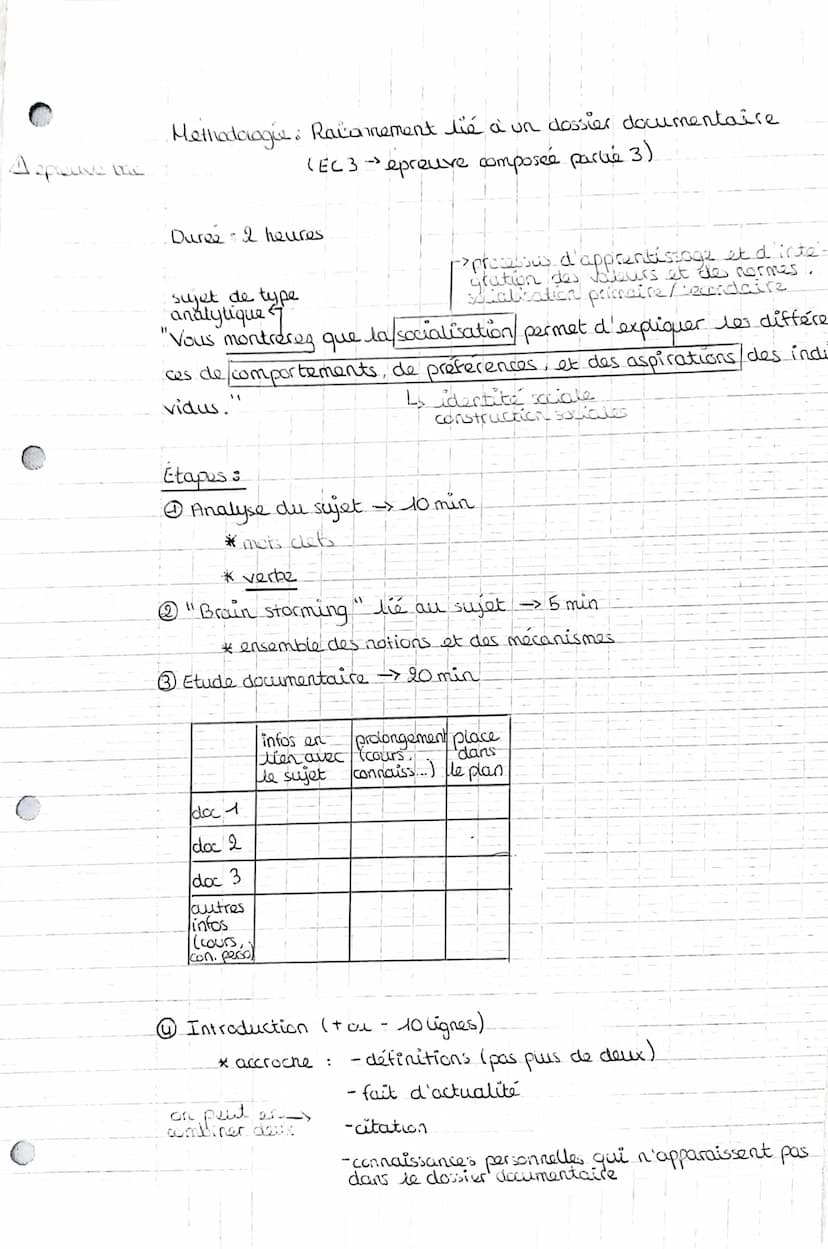 Méthodologie : Raisonnement lié à un dossier documentaire
(EC3 → épreuve composée partie 3)
épreuve bac
Durée = 2 heures
→ processus d'apprentissage et d'inté-
gration des valeurs et des normes.
socialisation primaire / secondaire
sujet de type
analytique
"Vous montrerez que la socialisation permet d'expliquer les différe
ces de comportements, de préférences, et des aspirations des indi
vidus."
↳ identité sociale
construction sociales
Étapes :
① Analyse du sujet → 10 min
* mots clefs
* verbe
② "Brain storming" lié au sujet → 5 min
* ensemble des notions et des mécanismes
③ Etude documentaire → 20 min
infos en lien avec le sujet | prolongement (cours, connaiss...) | place dans le plan
doc 1
doc 2
doc 3
autres
infos
(cours,
con. perso)
④ Introduction (+ ou - 10 lignes)
* accroche : - définitions (pas plus de deux)
- fait d'actualité
on peut en →
combiner deux
- citation
- connaissances personnelles qui n'apparaissent pas
dans le dossier documentaire